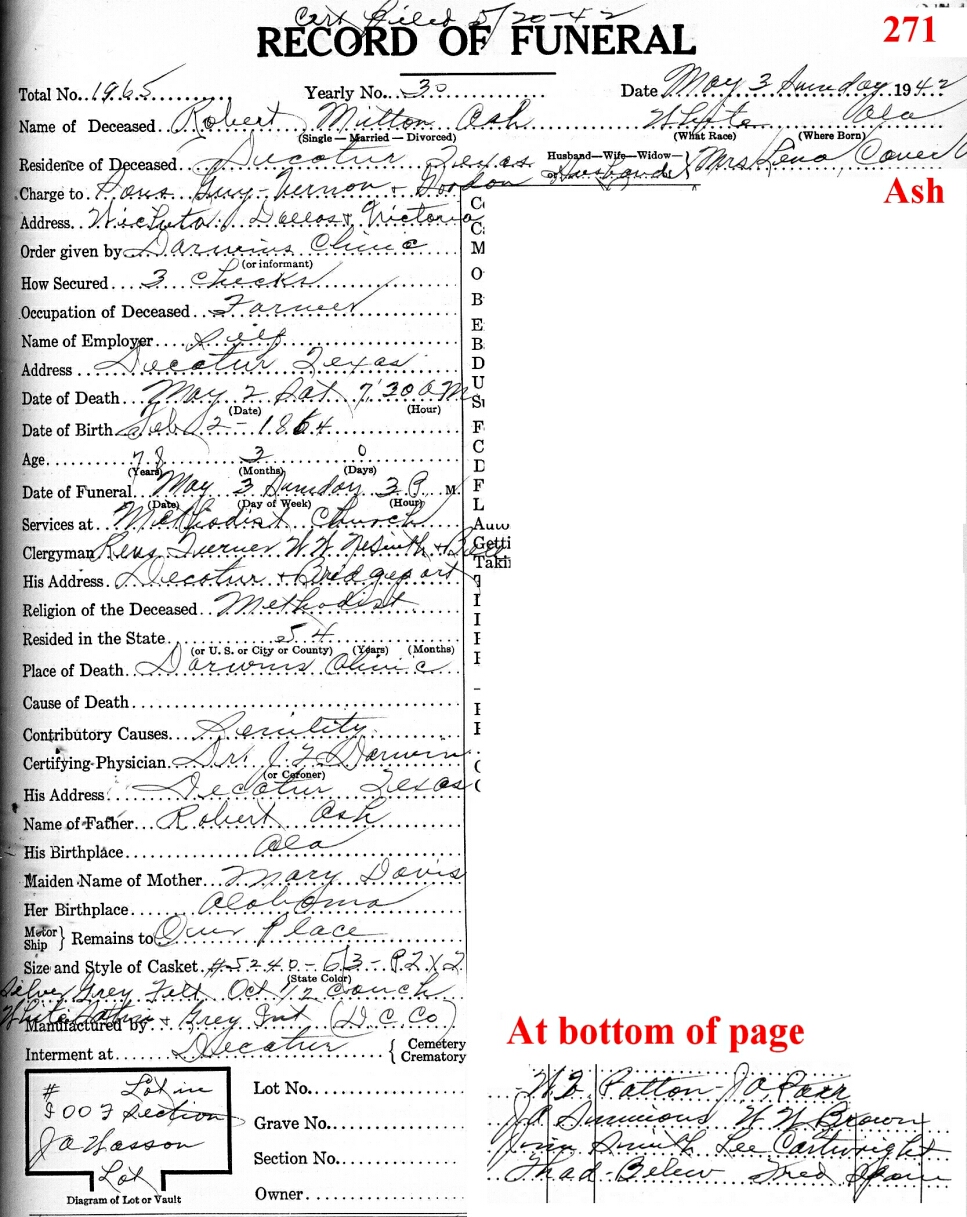 Cert Filed 5/20-42
271
RECORD OF FUNERAL
Total No. 1965 Yearly No. 30 Date May 3 Sunday 1942
Name of Deceased Robert Milton Ash White Ala
(Single — Married — Divorced) (What Race) (Where Born)
Residence of Deceased Decatur Texas Husband—Wife—Widow— Husband } Mrs Lena
Ash
Charge to Sons Guy - Vernon + Gordon
Address Wichita, Dallas + Victoria
Order given by Darwins Clinic
(or informant)
How Secured 3 checks
Occupation of Deceased Farmer
Name of Employer Self
Address Decatur Texas
Date of Death May 2 Sat 7:30 AM
(Date) (Hour)
Date of Birth Feb 2 - 1864
Age 78 3 0
(Years) (Months) (Days)
Date of Funeral May 3 Sunday 3 P. M.
(Date) (Day of Week) (Hour)
Services at Methodist Church
Clergyman Revs Turner W. W. +
His Address Decatur + Bridgeport
Religion of the Deceased Methodist
Resided in the State 54
(or U. S. or City or County) (Years) (Months)
Place of Death Darwins Clinic
Cause of Death
Contributory Causes Senility
Certifying Physician Dr. J. F. Darwin
(or Coroner)
His Address Decatur Texas
Name of Father Robert Ash
His Birthplace Ala
Maiden Name of Mother Mary Davis
Her Birthplace Alabama
Motor Ship } Remains to Our Place
Size and Style of Casket #5240-6/3-P.2X2
(State Color)
Silver Grey Felt Oct 1/2 Couch
Manufactured by White + Grey Int (D.C. Co)
Interment at Decatur { Cemetery Crematory
# Lot in
I O O F Section
J A Wasson
Lot
Diagram of Lot or Vault
Lot No.
Grave No.
Section No.
Owner
At bottom of page
Patton - J. O. Parr
J A Simmons W W Brown
Jim Smith Lee Cartwright
Thad Belew Fred Spain